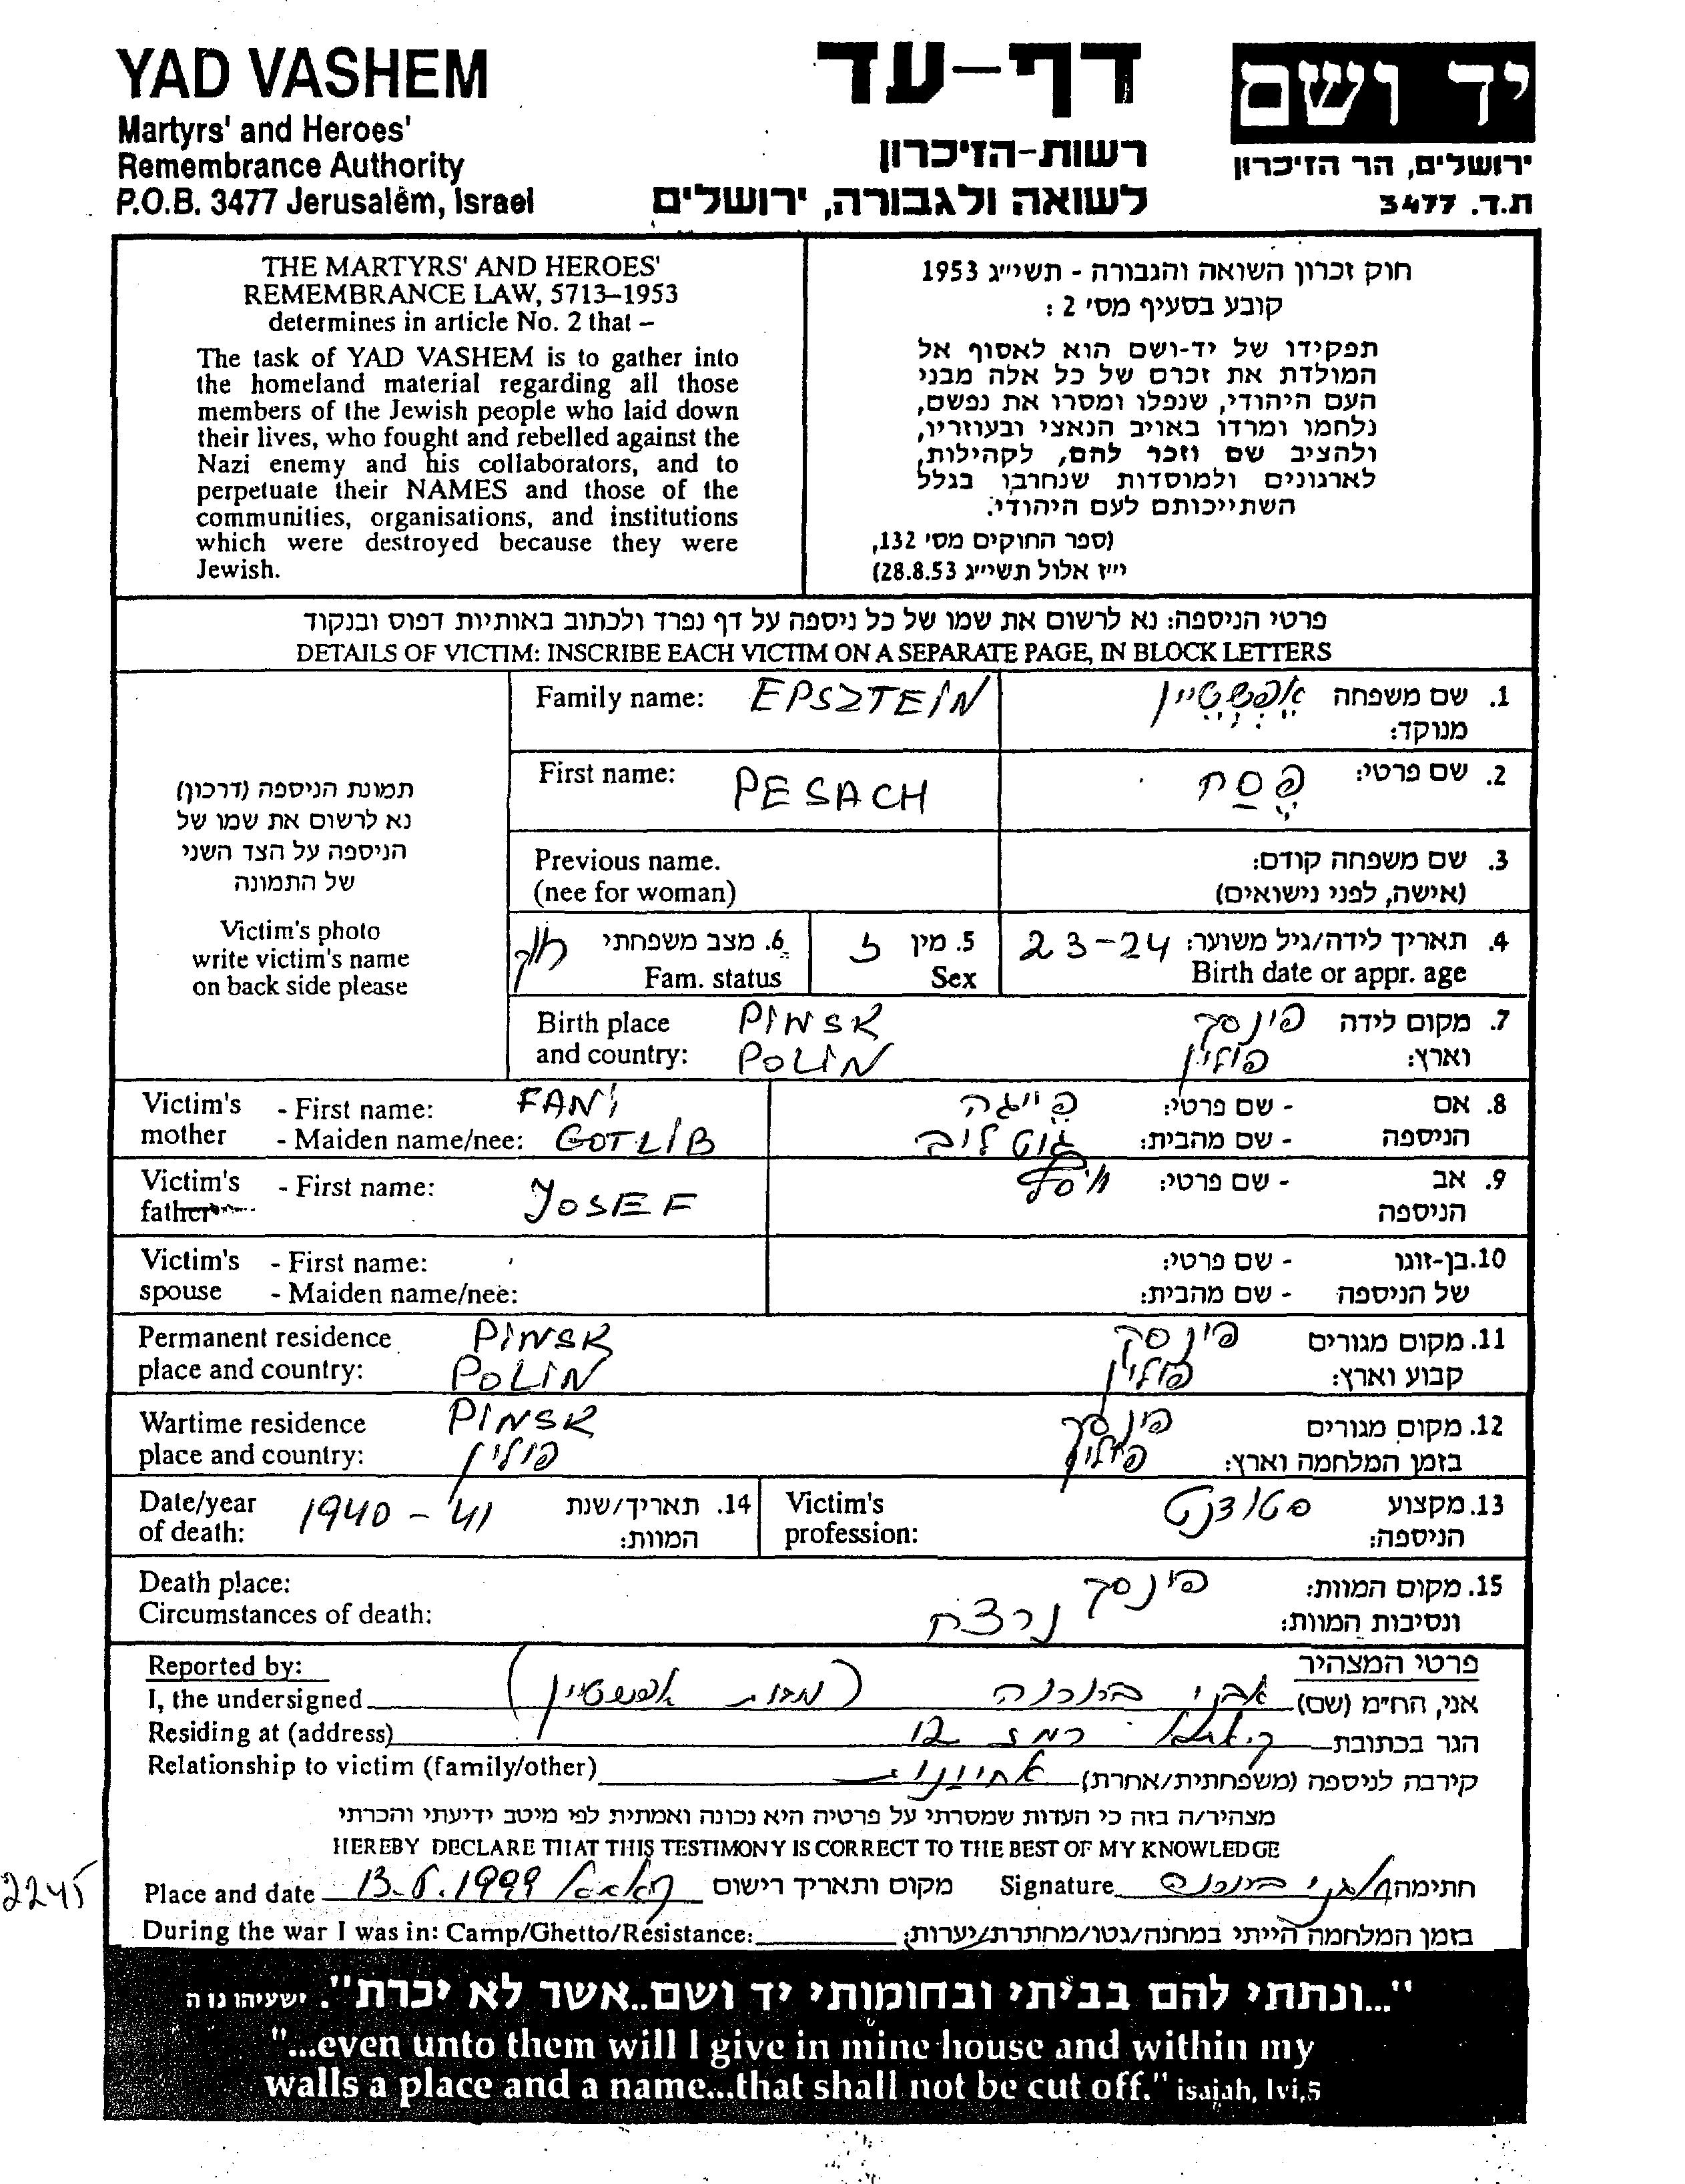 YAD VASHEM
Martyrs' and Heroes'
Remembrance Authority
P.O.B. 3477 Jerusalem, Israel
דף-עד
רשות-הזיכרון
לשואה ולגבורה, ירושלים
יד ושם
ירושלים, הר הזיכרון
ת.ד. 3477
THE MARTYRS' AND HEROES'
REMEMBRANCE LAW, 5713–1953
determines in article No. 2 that –
The task of YAD VASHEM is to gather into
the homeland material regarding all those
members of the Jewish people who laid down
their lives, who fought and rebelled against the
Nazi enemy and his collaborators, and to
perpetuate their NAMES and those of the
communities, organisations, and institutions
which were destroyed because they were
Jewish.
חוק זכרון השואה והגבורה - תשי״ג 1953
קובע בסעיף מס׳ 2 :
תפקידו של יד-ושם הוא לאסוף אל
המולדת את זכרם של כל אלה מבני
העם היהודי, שנפלו ומסרו את נפשם,
נלחמו ומרדו באויב הנאצי ובעוזריו,
ולהציב שם וזכר להם, לקהילות,
לארגונים ולמוסדות שנחרבו בגלל
השתייכותם לעם היהודי.
(ספר החוקים מס׳ 132,
י״ז אלול תשי״ג 28.8.53)
פרטי הניספה: נא לרשום את שמו של כל ניספה על דף נפרד ולכתוב באותיות דפוס ובנקוד
DETAILS OF VICTIM: INSCRIBE EACH VICTIM ON A SEPARATE PAGE, IN BLOCK LETTERS
תמונת הניספה (דרכון)
נא לרשום את שמו של
הניספה על הצד השני
של התמונה
Victim's photo
write victim's name
on back side please
Family name: EPSZTEIN אפשטיין 1. שם משפחה
מנוקד:
First name: PESACH פסח 2. שם פרטי:
Previous name. 3. שם משפחה קודם:
(nee for woman) (אישה, לפני נישואים)
4. תאריך לידה/גיל משוער: 23-24
Birth date or appr. age
5. מין ז
Sex
6. מצב משפחתי רווק
Fam. status
Birth place PINSK פינסק 7. מקום לידה
and country: POLIN פולין וארץ:
Victim's - First name: FANI פייגה - שם פרטי: 8. אם
mother - Maiden name/nee: GOTLIB גוטליב - שם מהבית: הניספה
Victim's - First name: JOSEF יוסף - שם פרטי: 9. אב
father הניספה
Victim's - First name: - שם פרטי: 10. בן-זוגו
spouse - Maiden name/nee: - שם מהבית: של הניספה
Permanent residence PINSK פינסק 11. מקום מגורים
place and country: POLIN פולין קבוע וארץ:
Wartime residence PINSK פינסק 12. מקום מגורים
place and country: פולין פולין בזמן המלחמה וארץ:
Date/year 1940 - 41 14. תאריך/שנת
of death: המוות:
Victim's סטודנט 13. מקצוע
profession: הניספה:
Death place: פינסק 15. מקום המוות:
Circumstances of death: נרצח ונסיבות המוות:
Reported by: פרטי המצהיר
I, the undersigned אני, הח״מ (שם) אפשטיין)
Residing at (address) הגר בכתובת 12
Relationship to victim (family/other) קירבה לניספה (משפחתית/אחרת) אחיינית
מצהיר/ה בזה כי העדות שמסרתי על פרטיה היא נכונה ואמתית לפי מיטב ידיעתי והכרתי
HEREBY DECLARE THAT THIS TESTIMONY IS CORRECT TO THE BEST OF MY KNOWLEDGE
2245
Place and date 13.6.1999 מקום ותאריך רישום Signature חתימה
During the war I was in: Camp/Ghetto/Resistance: בזמן המלחמה הייתי במחנה/גטו/מחתרת/יערות:
"...ונתתי להם בביתי ובחומותי יד ושם..אשר לא יכרת". ישעיהו נו ה
"...even unto them will I give in mine house and within my
walls a place and a name...that shall not be cut off." isaiah, lvi,5